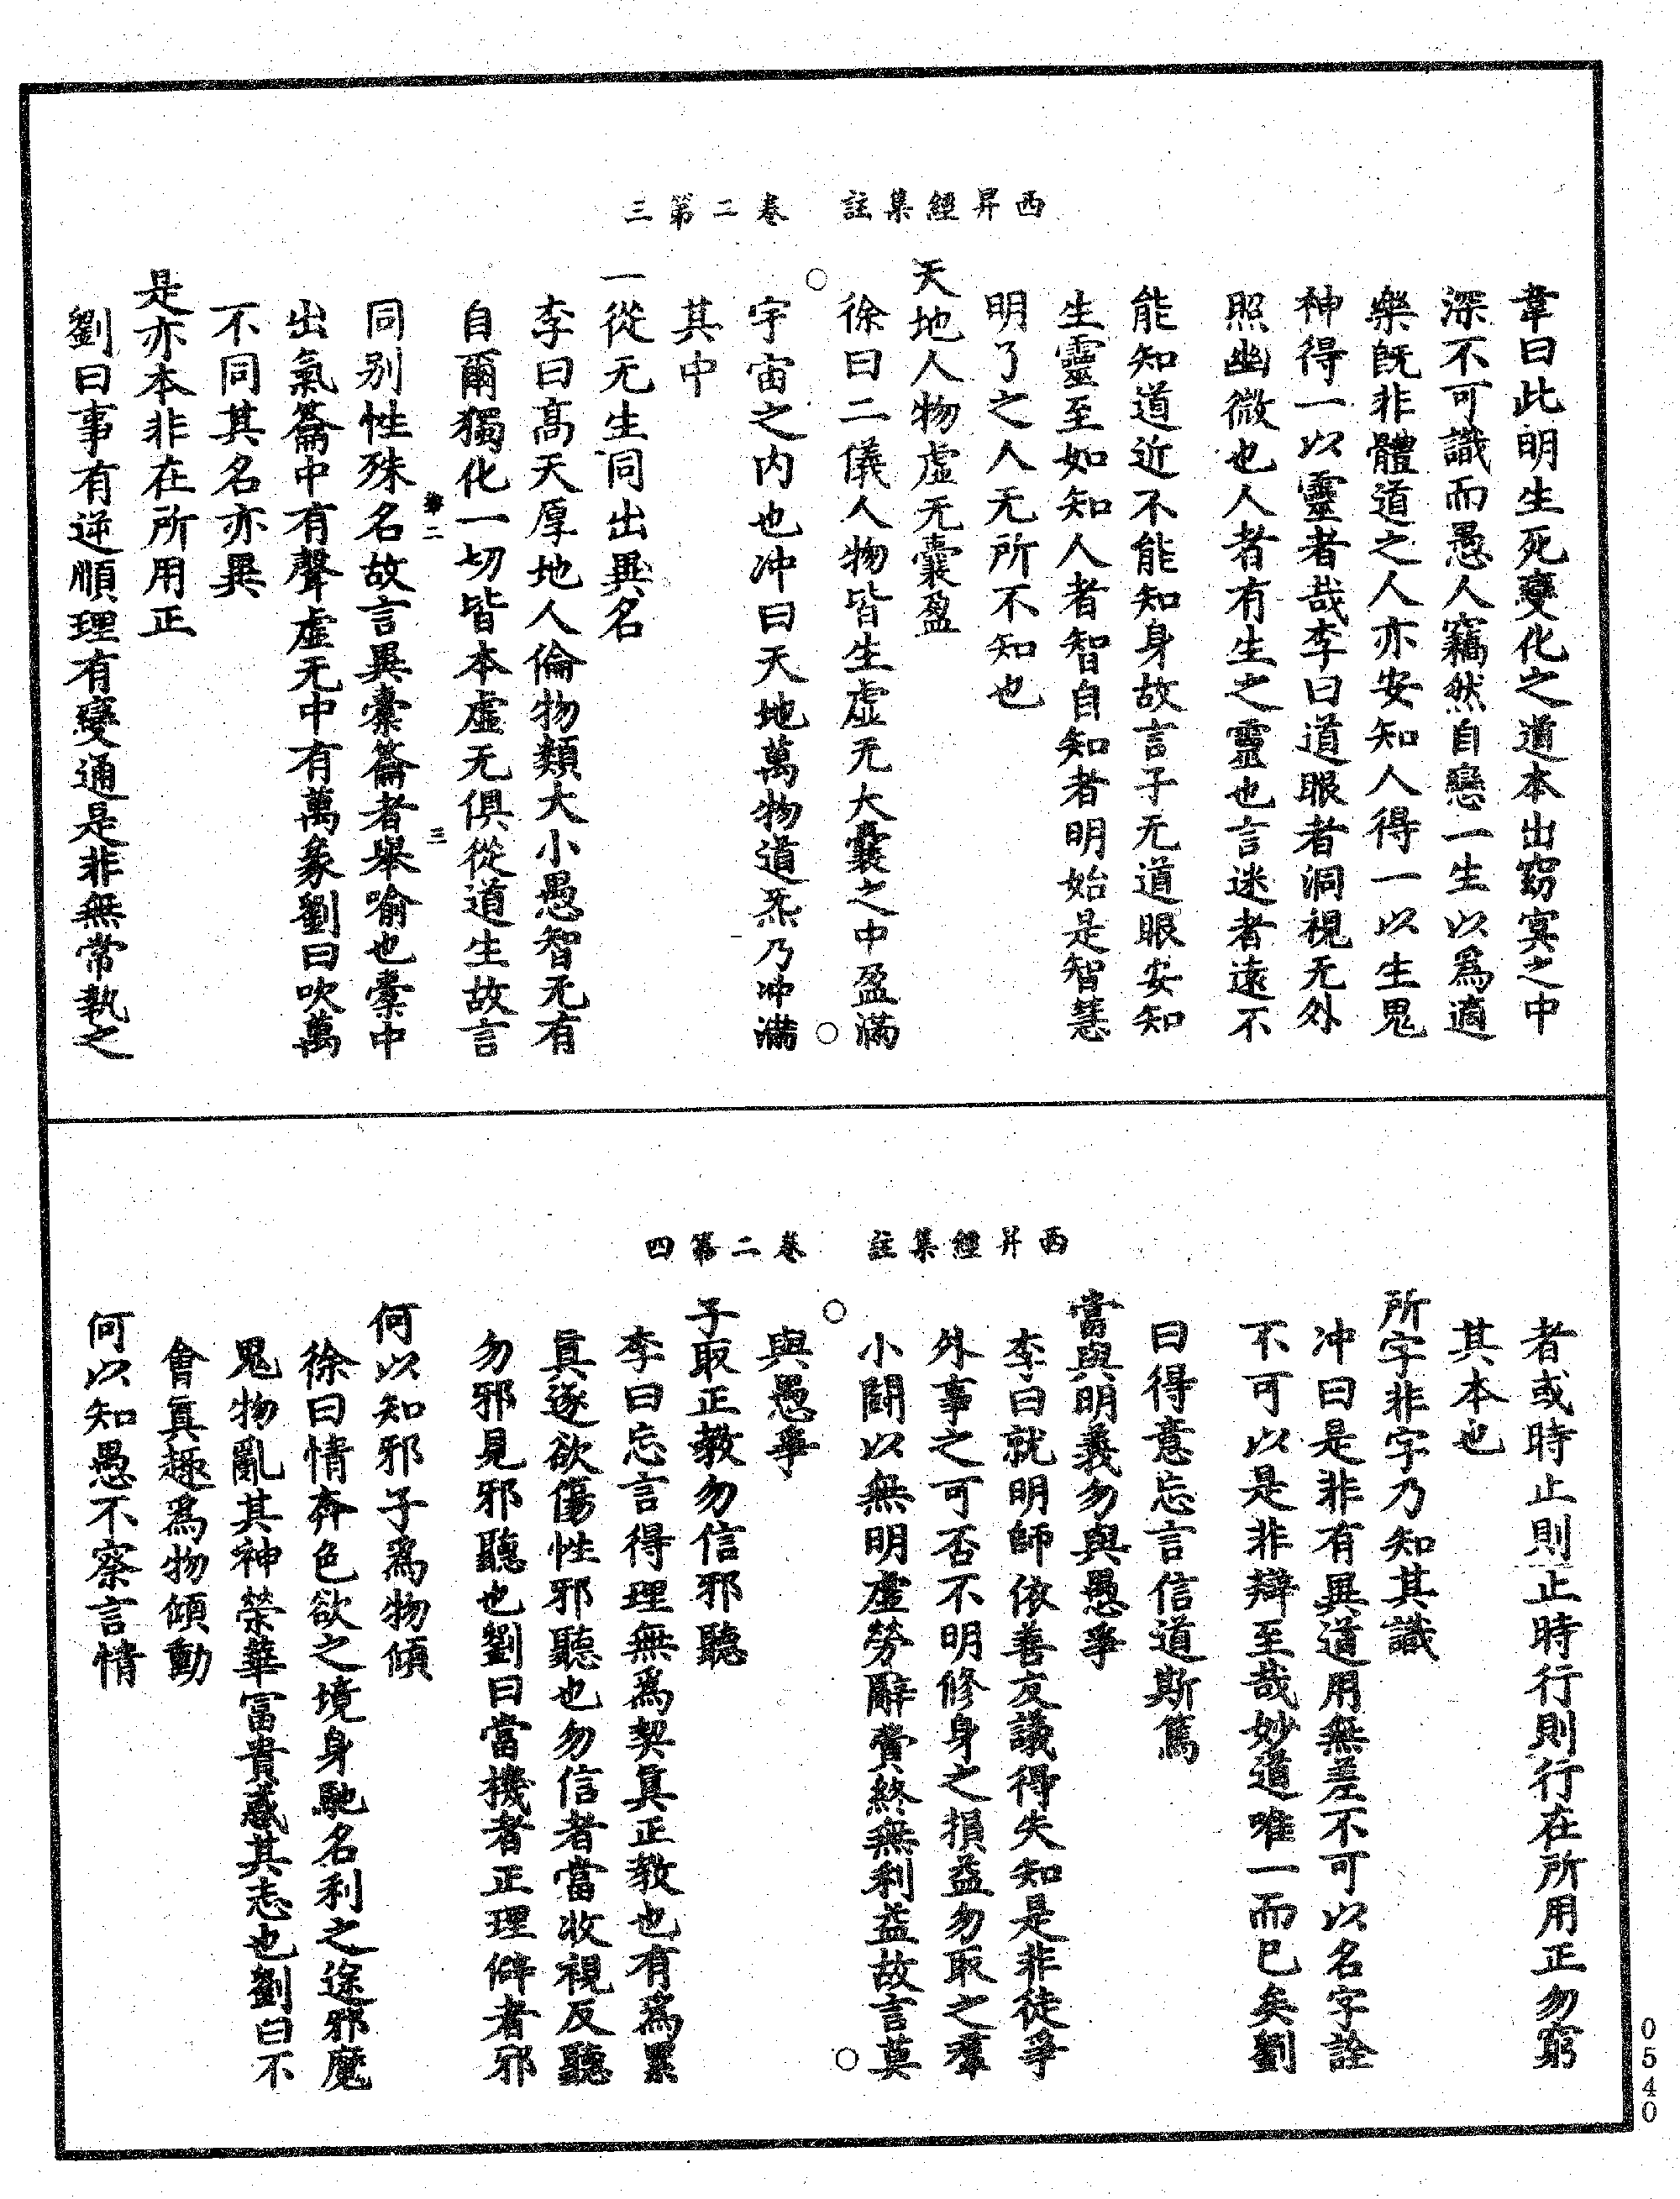 西昇經集註　卷二第三
韋曰此明生死變化之道本出窈冥之中
深不可識而愚人竊然自戀一生以爲適
樂旣非體道之人亦安知人得一以生鬼
神得一以靈者哉李曰道眼者洞視无外
照幽微也人者有生之靈也言迷者遠不
能知道近不能知身故言子无道眼安知
生靈至如知人者智自知者明始是智慧
明了之人无所不知也
天地人物虛无囊盈
徐曰二儀人物皆生虛无大囊之中盈滿
宇宙之内也冲曰天地萬物道炁乃冲滿
其中
一從无生同出異名
李曰髙天厚地人倫物類大小愚智无有
自爾獨化一切皆本虛无俱從道生故言
二　三
同别性殊名故言異橐籥者舉喻也橐中
出氣籥中有聲虛无中有萬象劉曰吹萬
不同其名亦異
是亦本非在所用正
劉曰事有逆順理有變通是非無常執之
西昇經集註　卷二第四
者或時止則止時行則行在所用正勿窮
其本也
所字非字乃知其識
冲曰是非有異道用無差不可以名字詮
不可以是非辯至哉妙道唯一而已矣劉
曰得意忘言信道斯篤
當與明義勿與愚爭
李曰就明師依善友議得失知是非徒爭
外事之可否不明修身之損益勿取之羣
小鬭以無明虛勞辭費終無利益故言莫
與愚爭
子取正教勿信邪聽
李曰忘言得理無爲契真正教也有爲累
真逐欲傷性邪聽也勿信者當收視反聽
勿邪見邪聽也劉曰當機者正理僻者邪
何以知邪子爲物傾
徐曰情奔色欲之境身馳名利之途邪魔
鬼物亂其神榮華富貴惑其志也劉曰不
會真趣爲物傾動
何以知愚不察言情
0540